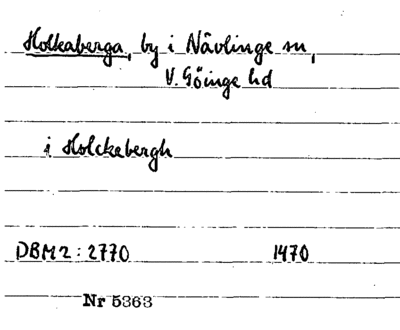 Holkaberga, by i Nävlinge sn,
V. Göinge hd
i Holckabergh
DBM2: 2770 1470
Nr 5363